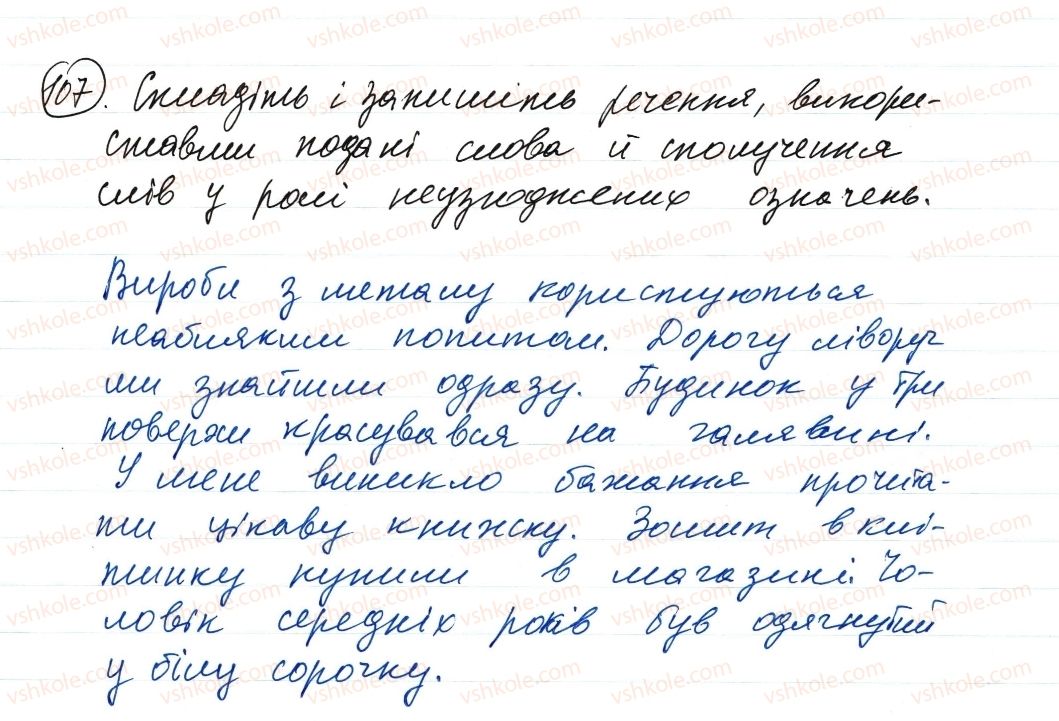 107. Складіть і запишіть речення, викори-
ставши подані слова й сполучення
слів у ролі неузгоджених означень.
Вироби з металу користуються
неабияким попитом. Дорогу ліворуч
ми знайшли одразу. Будинок у три
поверхи красувався на галявині.
У мене виникло бажання прочита-
ти цікаву книжку. Зошит в клі-
тинку купили в магазині. Чо-
ловік середніх років був одягнутий
у білу сорочку.